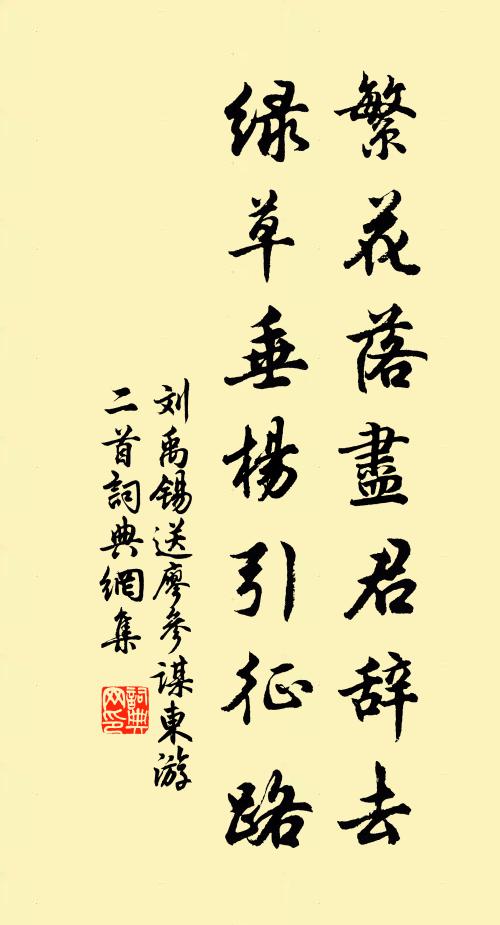 繁花落盡君辞去
绿草垂楊引征路
刘禹锡送廖參谋東游
二首詞典網集
詞典网印